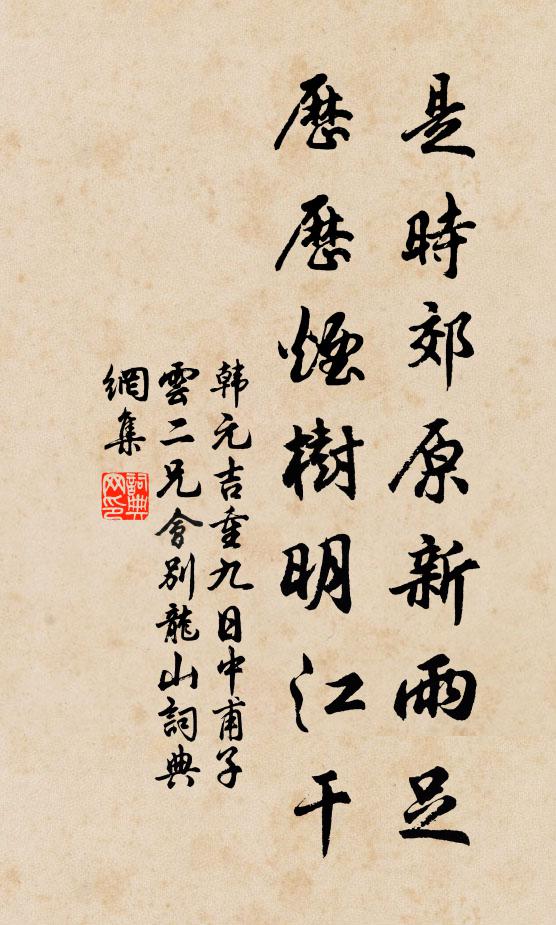 是時郊原新雨足
歷歷煙樹明江干
韩元吉重九日中甫子
雲二兄會别龍山詞典
網集
詞典
网印